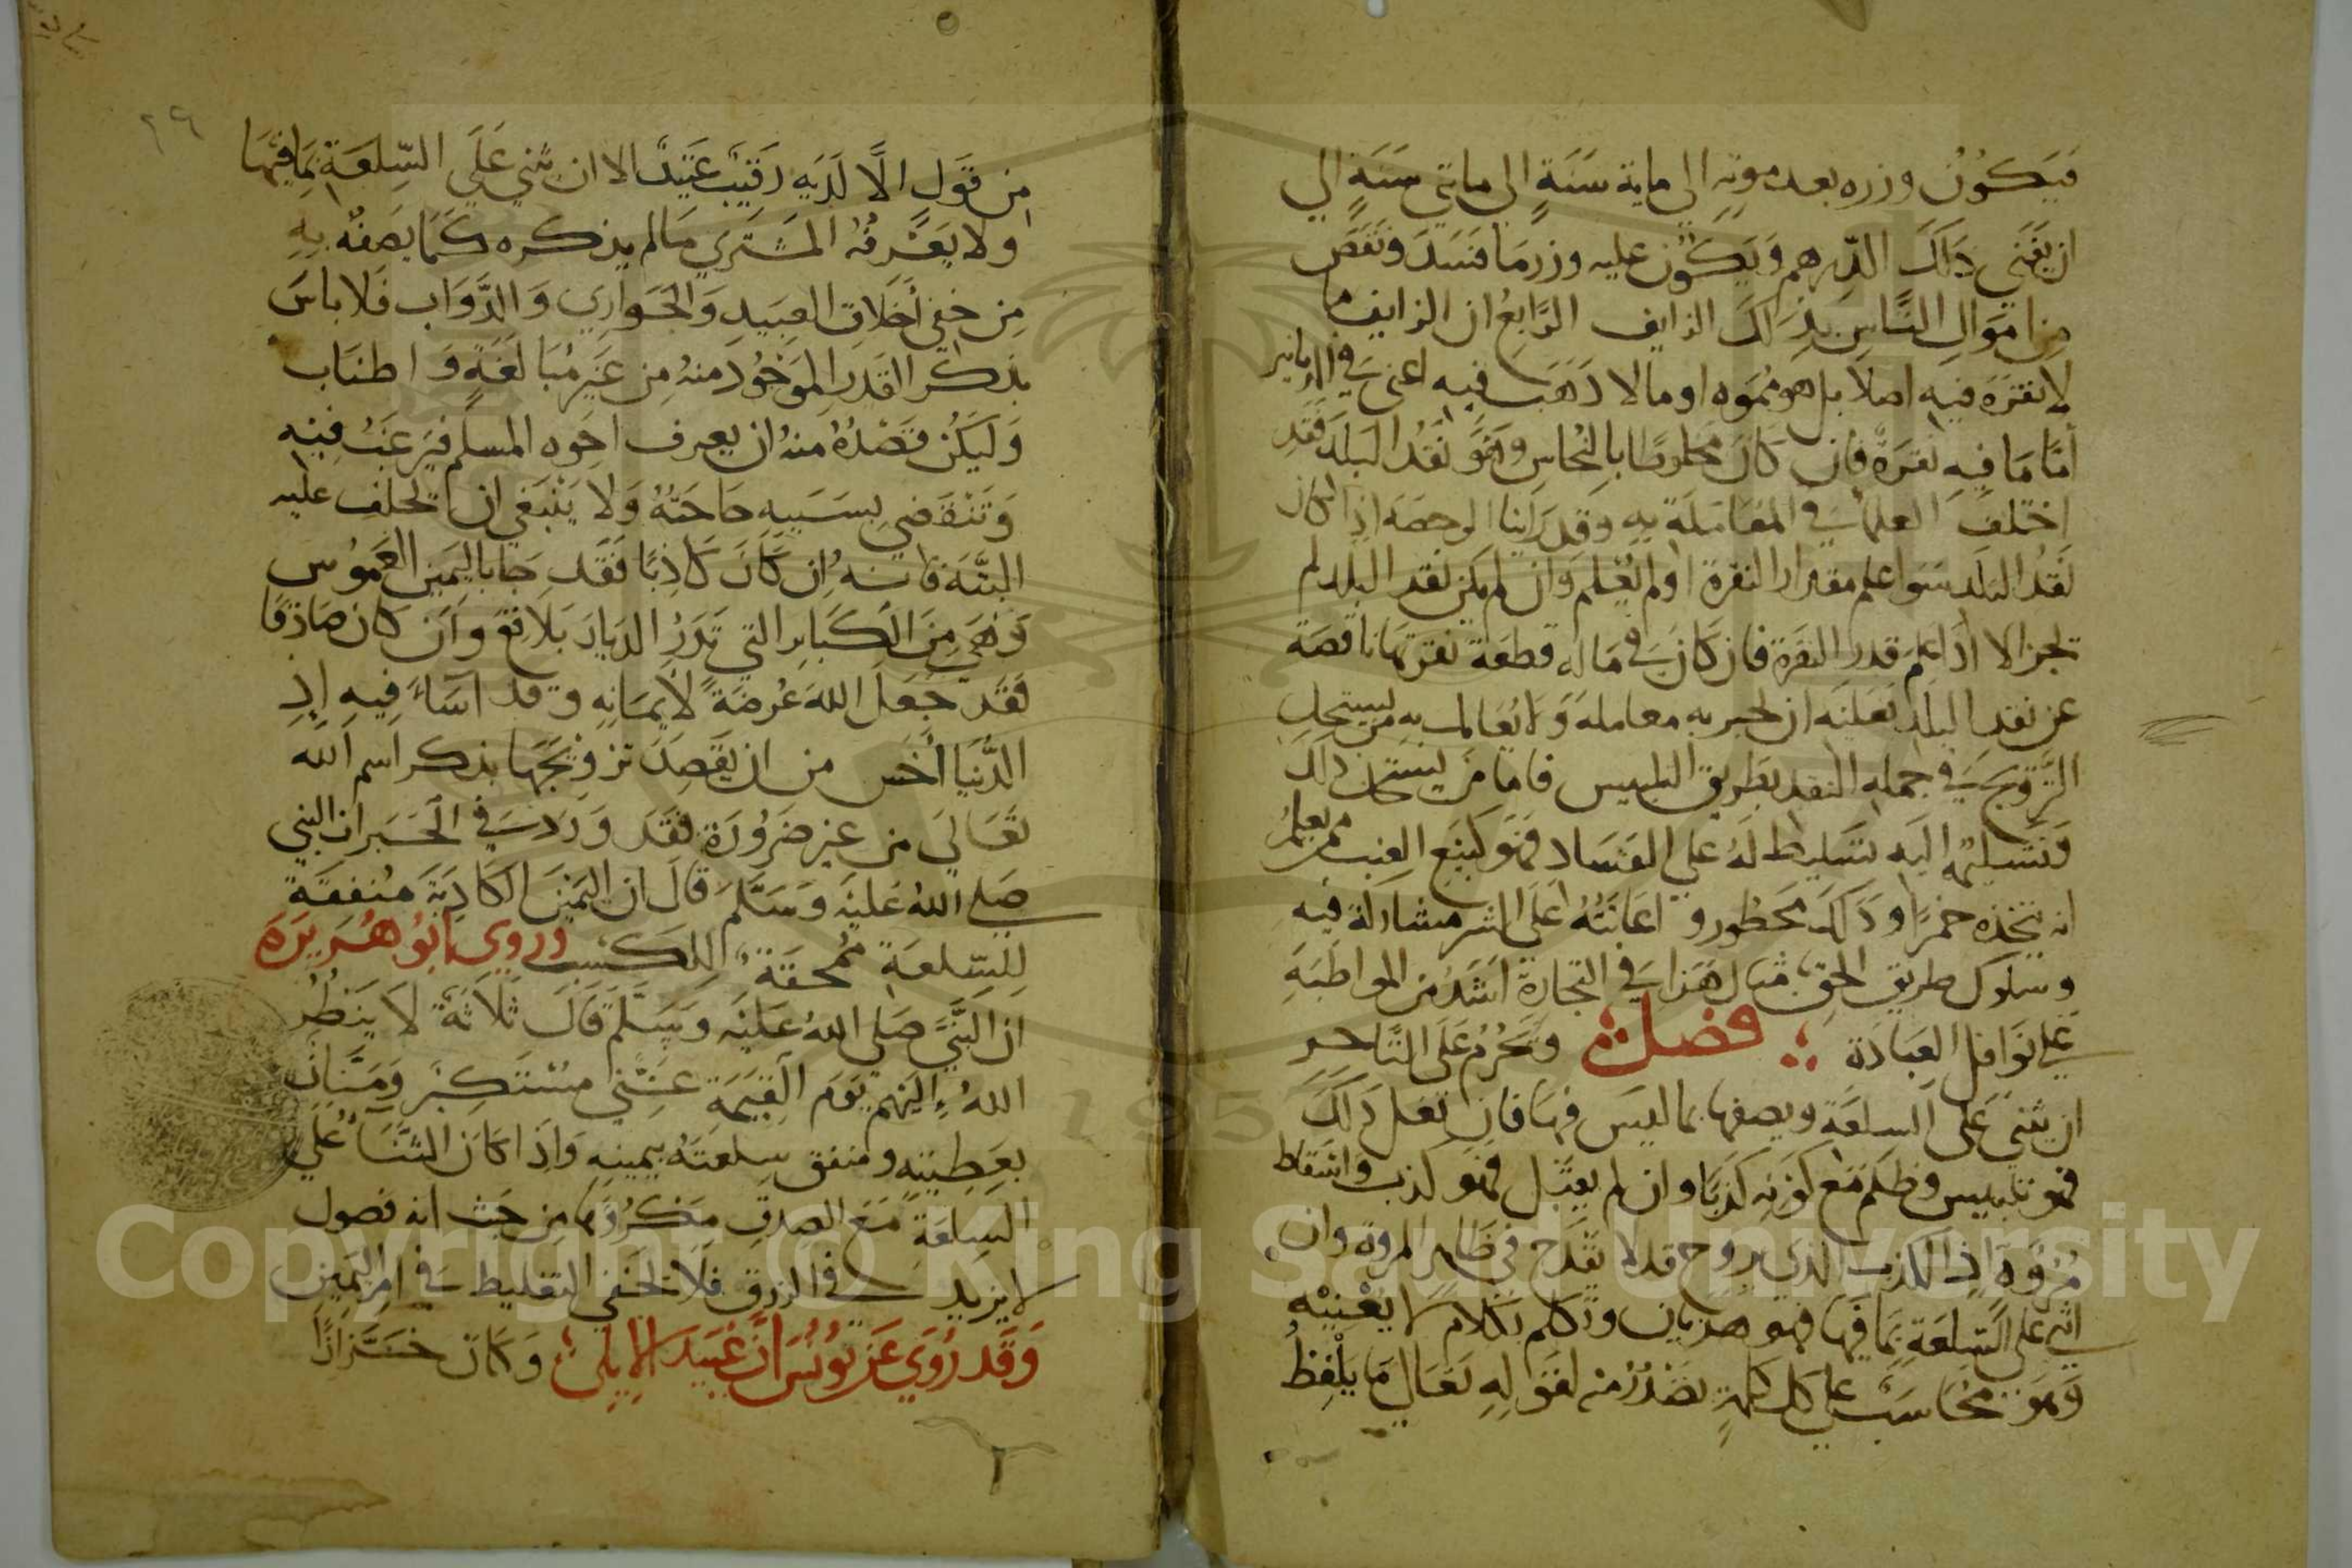 فيكون وزره بعد موته الى ماية سنة الى مايتي سنة الي
ان يفني ذلك الدرهم ويكون عليه وزر ما فسد ونقص
من اموال الناس بذلك الزايف الرابع ان الزايف ما
لا نقرة فيه اصلا بل هو مموه او ما لا ذهب فيه اعني في الدنانير
أمّا ما فيه نقرة فان كان مخلوطا بالنحاس وهو نقد البلد فقد
اختلف العلما في المعاملة به وقد راينا الرخصة اذا كان
نقد البلد سوا علم مقدار النقرة او لم يعلم وان لم يكن نقد البلد لم
تجز الا اذا علم قدر النقرة فان كان في ماله قطعة نقرتها ناقصة
عن نقد البلد فعليه ان يخبر به معامله ولا يعامل به من يستحل
الترويج في جملة النقد بطريق التلبيس فاما من يستحل ذلك
وتسليمه اليه تسليط له على الفساد فهو كبيع العنب ممن يعلم
انه يتخذه خمرا وذلك محظور واعانته على الشر مشاركة فيه
وسلوك طريق الحق مثال هذا في التجارة اشد من المواظبة
علي نوافل العبادة فصل ويحرم على التاجر
ان يثني على السلعة ويصفها بما ليس فيها فان فعل ذلك
فهو تلبيس وظلم مع كونه كذبا وان لم يقبل فهو كذب واسقاط
مروة اذ الكذب الذي يروج قد لا يقدح في ظاهر المروة وان
اثنى على السلعة بما فيها فهو هذيان وتكلم بكلام لا يعنيه
وهو محاسب على كل كلمة تصدر منه لقوله تعالى ما يلفظ
من قول الا لديه رقيب عتيد الا ان يثني على السلعة بما فيها
ولا يعرفه المشتري ما لم يذكره كما يصفه به
من خفي أخلاق العبيد والجواري والدواب فلا باس
بذكر القدر الموجود منه من غير مبالغة واطناب
وليكن قصده منه ان يعرف اخوه المسلم فيرغب فيه
وتنقضي بسببه حاجته ولا ينبغي ان يحلف عليه
البتة فانه إن كان كاذبا فقد جا باليمين الغموس
وهي من الكباير التي تدر الديار بلاقع وان كان صادقا
فقد جعل الله عرضة لايمانه وقد اساء فيه إذ
الدنيا أخس من ان يقصد ترويجها بذكر اسم الله
تعالى من غير ضرورة فقد ورد في الخبر ان النبي
صلى الله عليه وسلم قال ان اليمين الكاذبة منفقة
للسلعة ممحقة للكسب وروي ابو هريرة
ان النبي صلي الله عليه وسلم قال ثلاثة لا ينظر
الله إليهم يوم القيمة مستكبر ومنان
بعطيته ومنفق سلعته بيمينه واذا كان الثناء على
السلعة مع الصدق مكروها من حيث انه فضول
لا يزيد في الرزق فلا يخفي التغليظ في امر اليمين
وقد روي عن يونس ان عبيد الايلي وكان خزازا